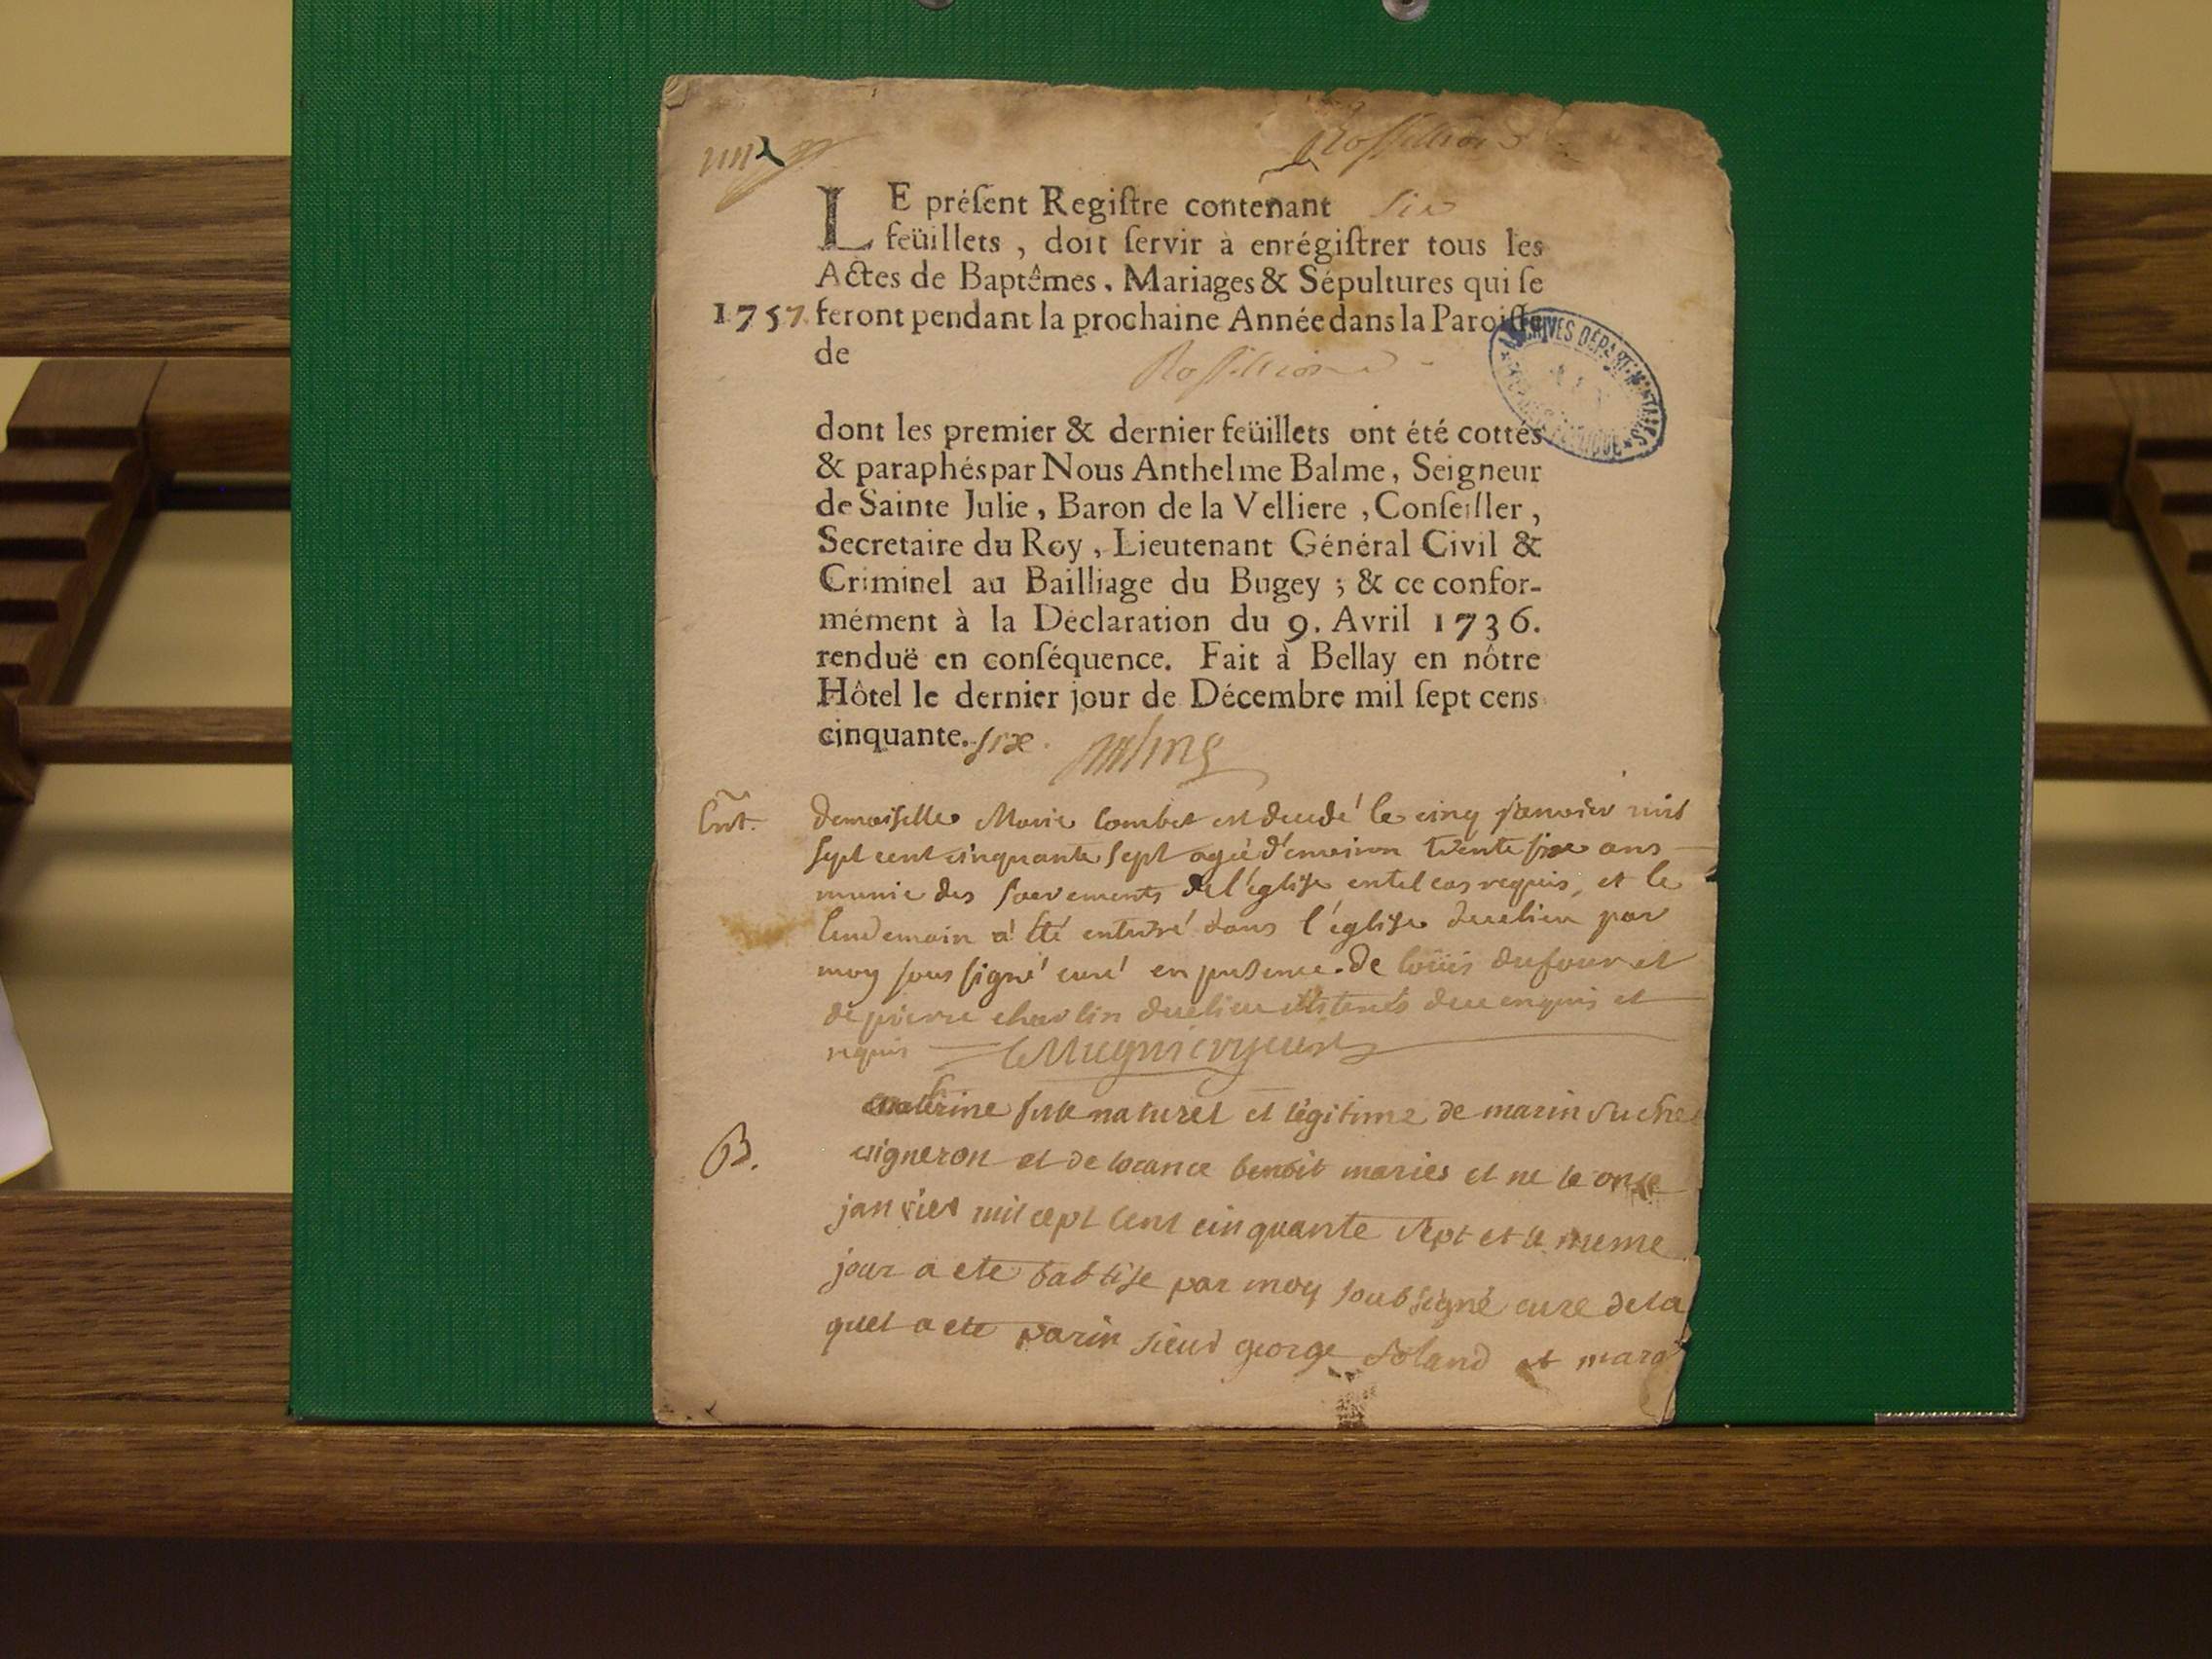 Rossillion
LE préſent Regiſtre contenant six
feüillets , doit ſervir à enrégiſtrer tous les
Actes de Baptêmes , Mariages & Sépultures qui ſe
1757. feront pendant la prochaine Année dans la Paroiſſe
de Rossillion
ARCHIVES DÉPARTEMENTALES
dont les premier & dernier feüillets ont été cottés
& paraphés par Nous Anthelme Balme , Seigneur
de Sainte Julie , Baron de la Velliere , Conſeiller ,
Secretaire du Roy , Lieutenant Général Civil &
Criminel au Bailliage du Bugey ; & ce confor-
mément à la Déclaration du 9. Avril 1736.
renduë en conſéquence. Fait à Bellay en nôtre
Hôtel le dernier jour de Décembre mil ſept cens
cinquante. six.
Ent. Demoiselle Marie Combet est decedé le cinq janvier mil
sept cent cinquante sept agée d'environ trente six ans
munie des sacrements de l'église en tel cas requis, et le
lendemain a été enterré dans l'église dudit lieu par
moy soussigné curé en presence de louïs dufour et
de pierre charlin dudit lieu illiterés de ce enquis et
requis
B. catherine fille naturel et légitime de marin suchet
vigneron et de benoit mariés et ne le onze
janvier mil cept cent cinquante sept et le meme
jour a ete babtise par moy soubsigné cure de la
quel a ete parin sieur george et marg